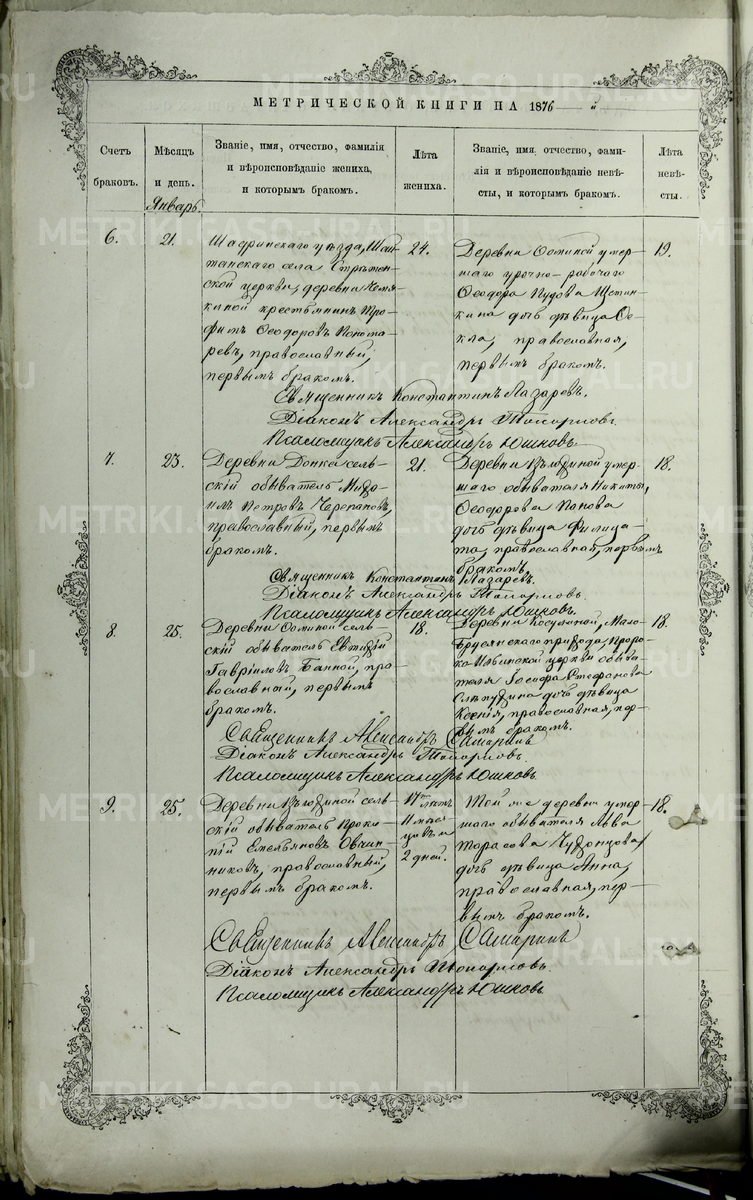 МЕТРИЧЕСКОЙ КНИГИ НА 1876 й
Счетъ
браковъ.
Мѣсяцъ
и день.
Январь.
Званіе, имя, отчество, фамилія
и вѣроисповѣданіе жениха,
и которымъ бракомъ.
Лѣта
жениха.
Званіе, имя, отчество, фами-
лія и вѣроисповѣданіе невѣ-
сты, и которымъ бракомъ.
Лѣта
невѣ-
сты.
6.
21.
Шадринскаго уѣзда, Шай-
танскаго села Срѣтен-
ской церкви, деревни
крестьянинъ Тро-
фимъ Ѳеодоровъ Понома-
ревъ, православный,
первымъ бракомъ.
24.
Деревни умер-
шаго урочно-рабочаго
Ѳеодора Пудова Щетин-
кина дочь дѣвица Ѳе-
кла, православная,
первымъ бракомъ.
19.
Священникъ Константинъ Лазаревъ.
Діаконъ Александръ
Псаломщикъ Александръ Юшковъ.
7.
23.
Деревни сель-
скій обыватель
Петровъ Черепановъ,
православный, первымъ
бракомъ.
21.
Деревни умер-
шаго обывателя Никиты
Ѳеодорова Попова
дочь дѣвица Филица-
та, православная, первымъ
бракомъ.
18.
Священникъ Константинъ Лазаревъ.
Діаконъ Александръ
Псаломщикъ Александръ Юшковъ.
8.
25.
Деревни сель-
скій обыватель Евтихій
Гавріиловъ Банной, пра-
вославный, первымъ
бракомъ.
18.
Деревни Косулиной, Мало-
Брусянскаго прихода, Проро-
ко-Ильинской церкви обыва-
теля Іосифа Стефанова
дочь дѣвица
Ксенія, православная, пер-
вымъ бракомъ.
18.
Священникъ Александръ Самаринъ
Діаконъ Александръ
Псаломщикъ Александръ Юшковъ
9.
25.
Деревни сель-
скій обыватель Проко-
пій Емельяновъ Овчин-
никовъ, православный,
первымъ бракомъ.
17ть лѣтъ
11 мѣся-
цевъ и
2 дней.
Той же деревни умер-
шаго обывателя Льва
Тарасова
дочь дѣвица Анна,
православная, пер-
вымъ бракомъ.
18.
Священникъ Александръ Самаринъ
Діаконъ Александръ
Псаломщикъ Александръ Юшковъ
METRIKI.GASO-URAL.RU